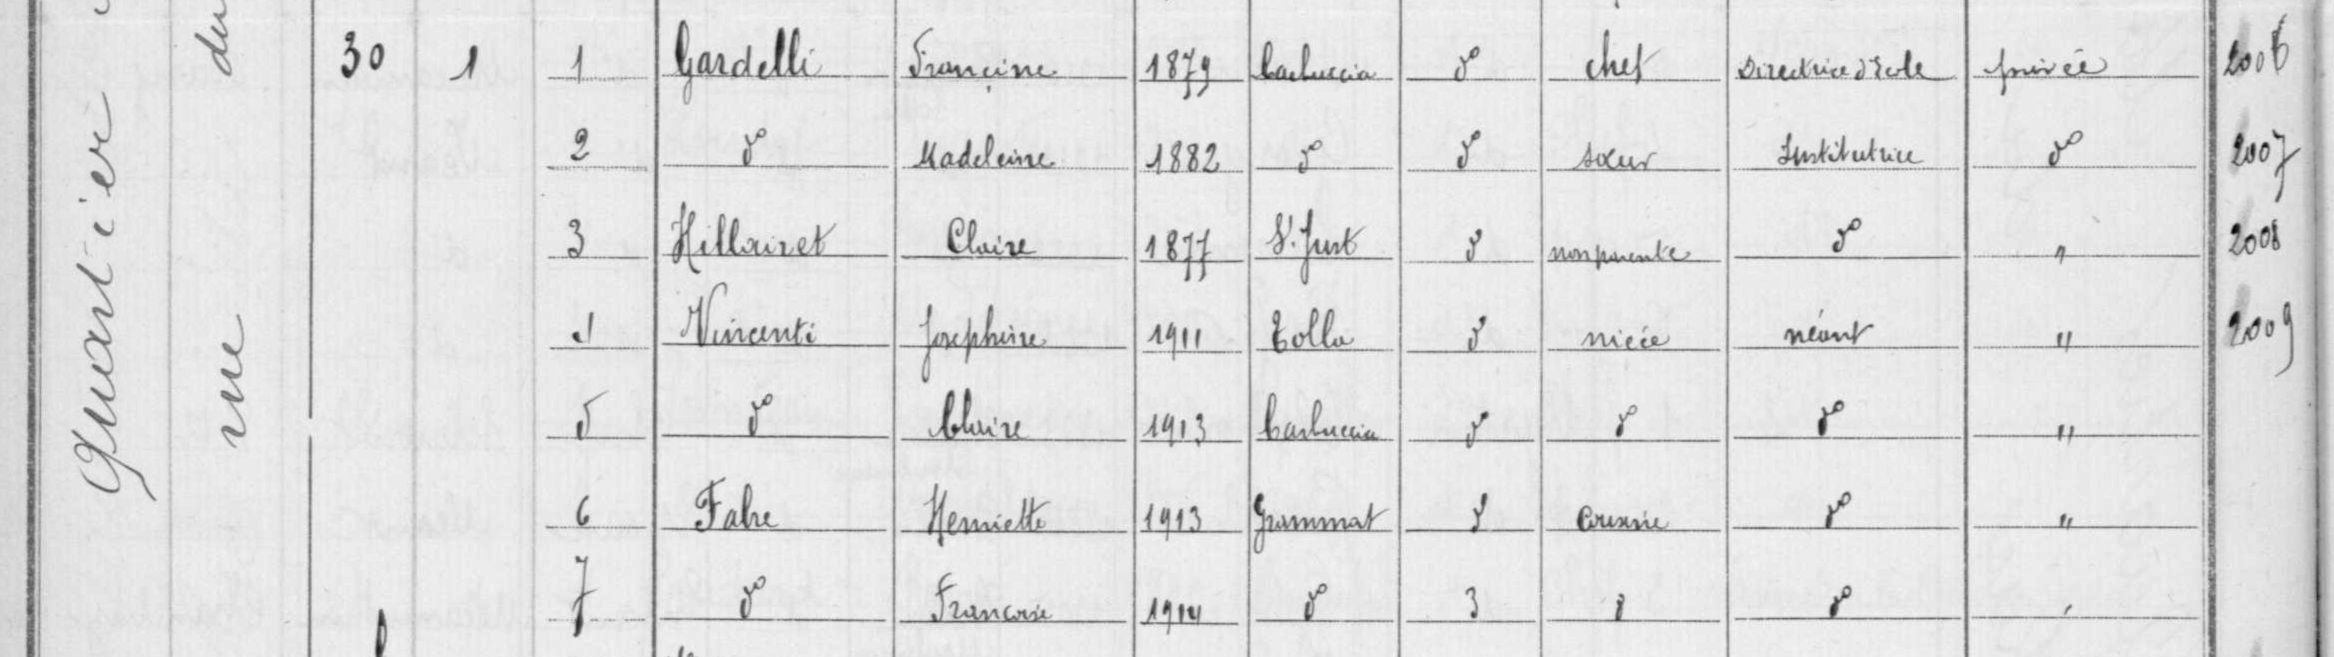 Quartier
rue du
30 1 1 Gardelli Françine 1879 Carluccia do chef Directrice d'Ecole privée 2006
2 do Madeleine 1882 do do sœur Institutrice do 2007
3 Hillairet Claire 1877 St. Just do non parente do " 2008
4 Vincenti Josephine 1911 Tolla do nièce néant " 2009
5 do Claire 1913 Carluccia do do do "
6 Fabre Henriette 1913 Grammat do cousine do "
7 do Francoise 1914 do do do